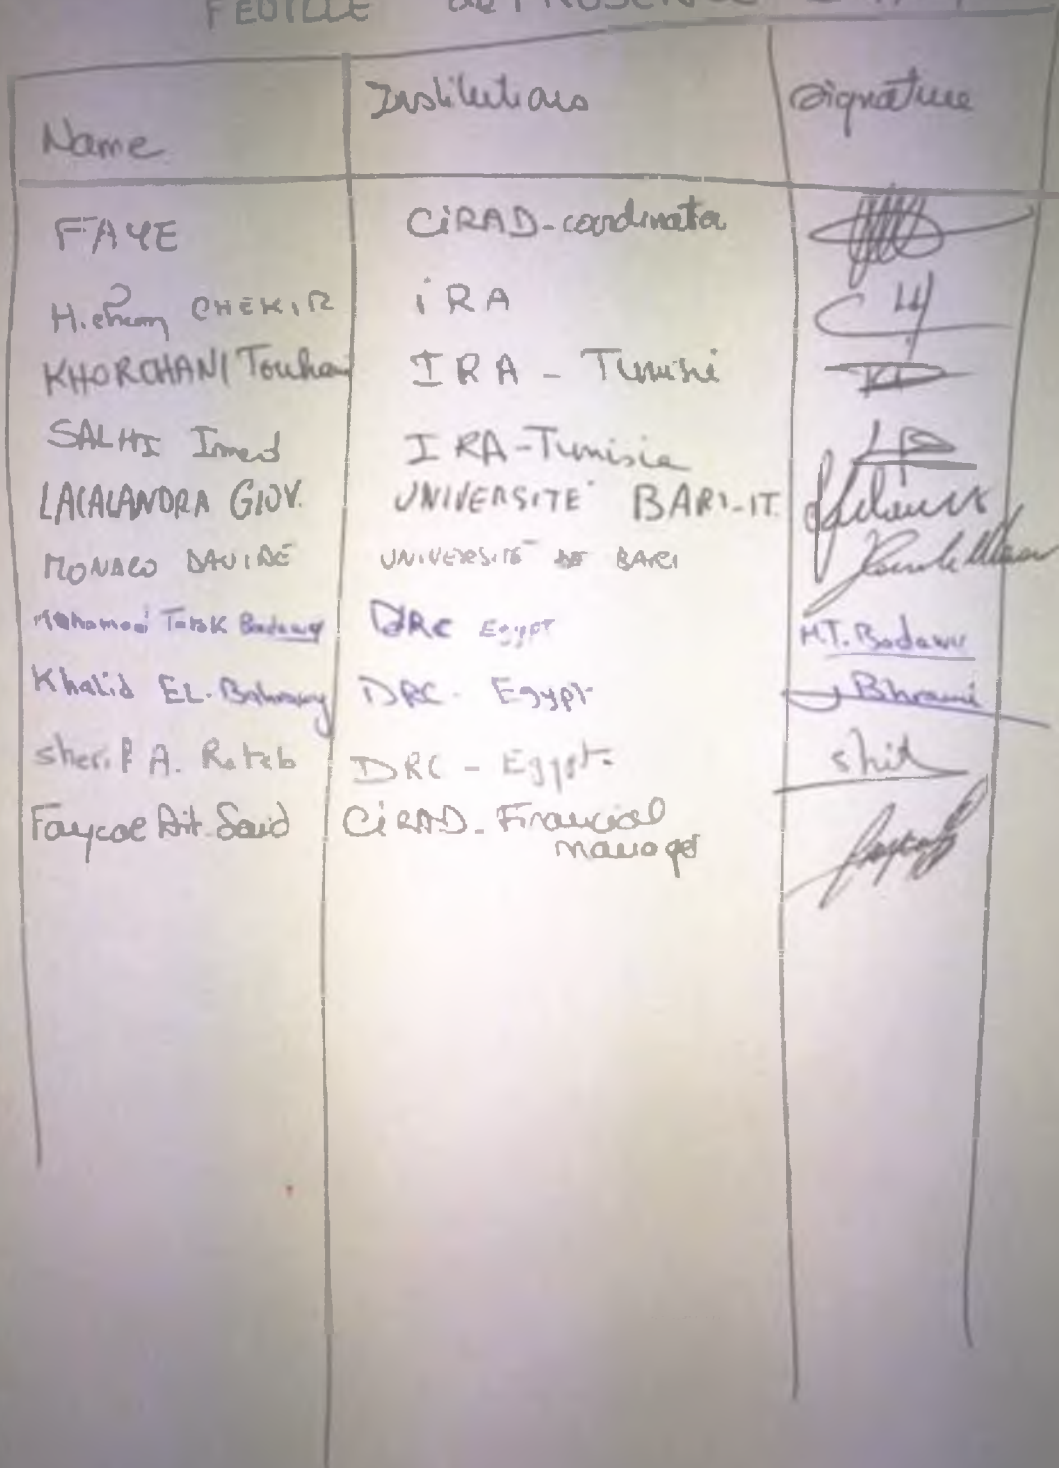 FEUILLE DE PRESENCE
Name Institutions Signature
FAYE CIRAD-coordinator
Hichem CHEKIR iRA CH
KHORCHANI Touhami IRA - Tunisie
SALHI Imed IRA-Tunisie
LACALANDRA GIOV. UNIVERSITE BARI-IT.
MONACO DAVIDE UNIVERSITÉ DE BARI
Mohamed Tarek Badawy DRC Egypt M.T. Badawy
Khalid EL-Bahrawy DRC - Egypt Bhrawi
sherif A. Rateb DRC - Egypt
Faycal Ait-Said CIRAD - Financial
manager